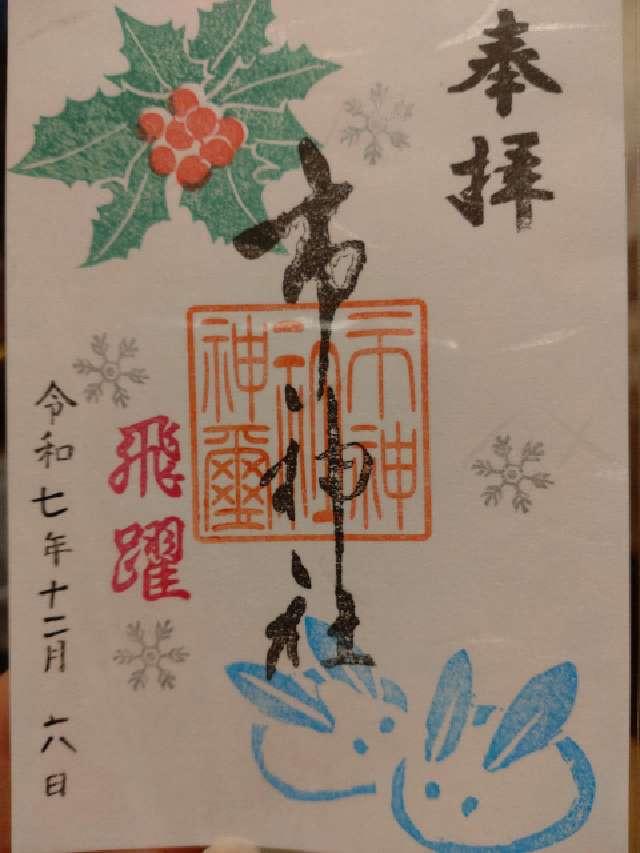 奉拝
市神社
市神
社
神璽
飛躍
令和七年十二月六日